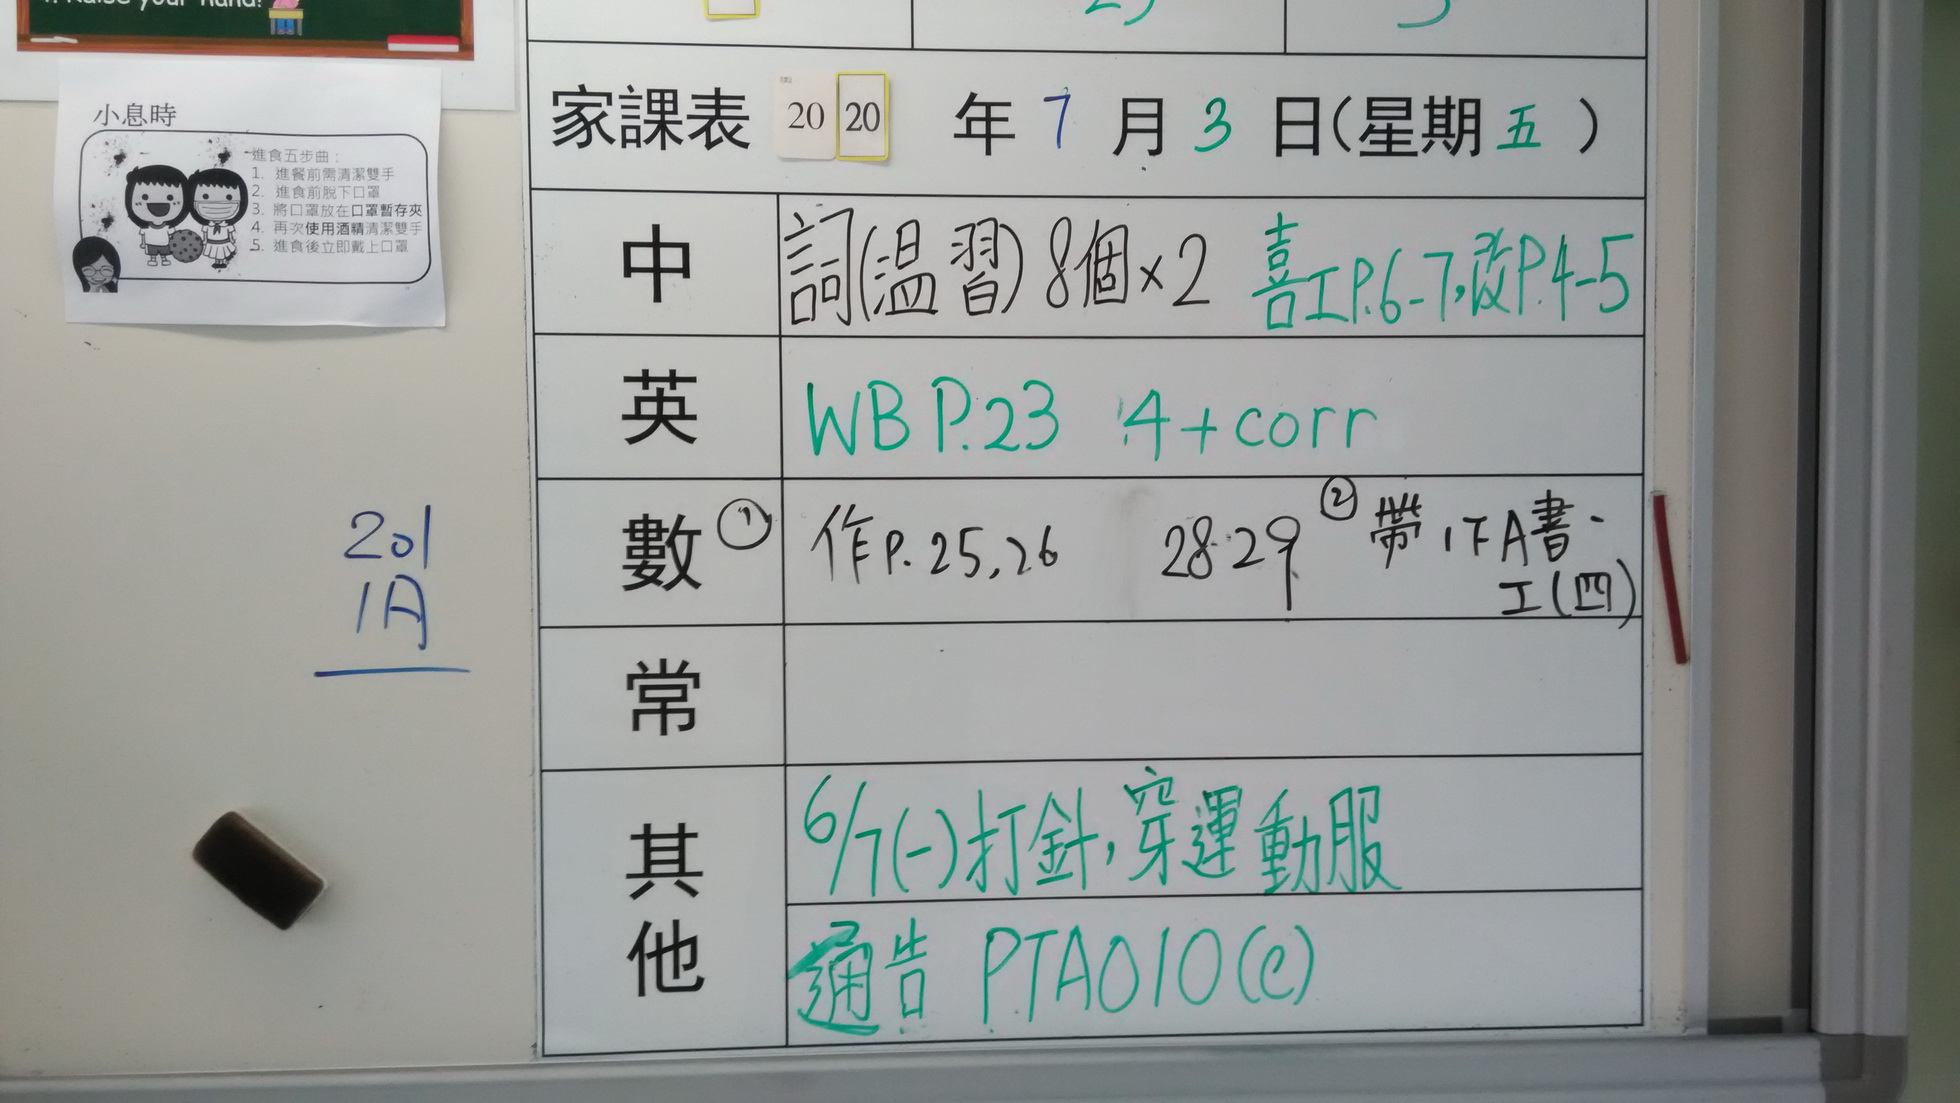 Raise your hand!
小息時
進食五步曲：
1. 進餐前需清潔雙手
2. 進食前脫下口罩
3. 將口罩放在口罩暫存夾
4. 再次使用酒精清潔雙手
5. 進食後立即戴上口罩
家課表 20 20 年 7 月 3 日(星期 五 )
中 詞(温習) 8個×2 喜工P.6-7,改P.4-5
英 WB P.23 4+corr
數 ① 作P.25,26 28.29 ② 帶1下A書、
工(四)
常
其他
6/7(一)打針,穿運動服
通告 PTA010(e)
201
1A